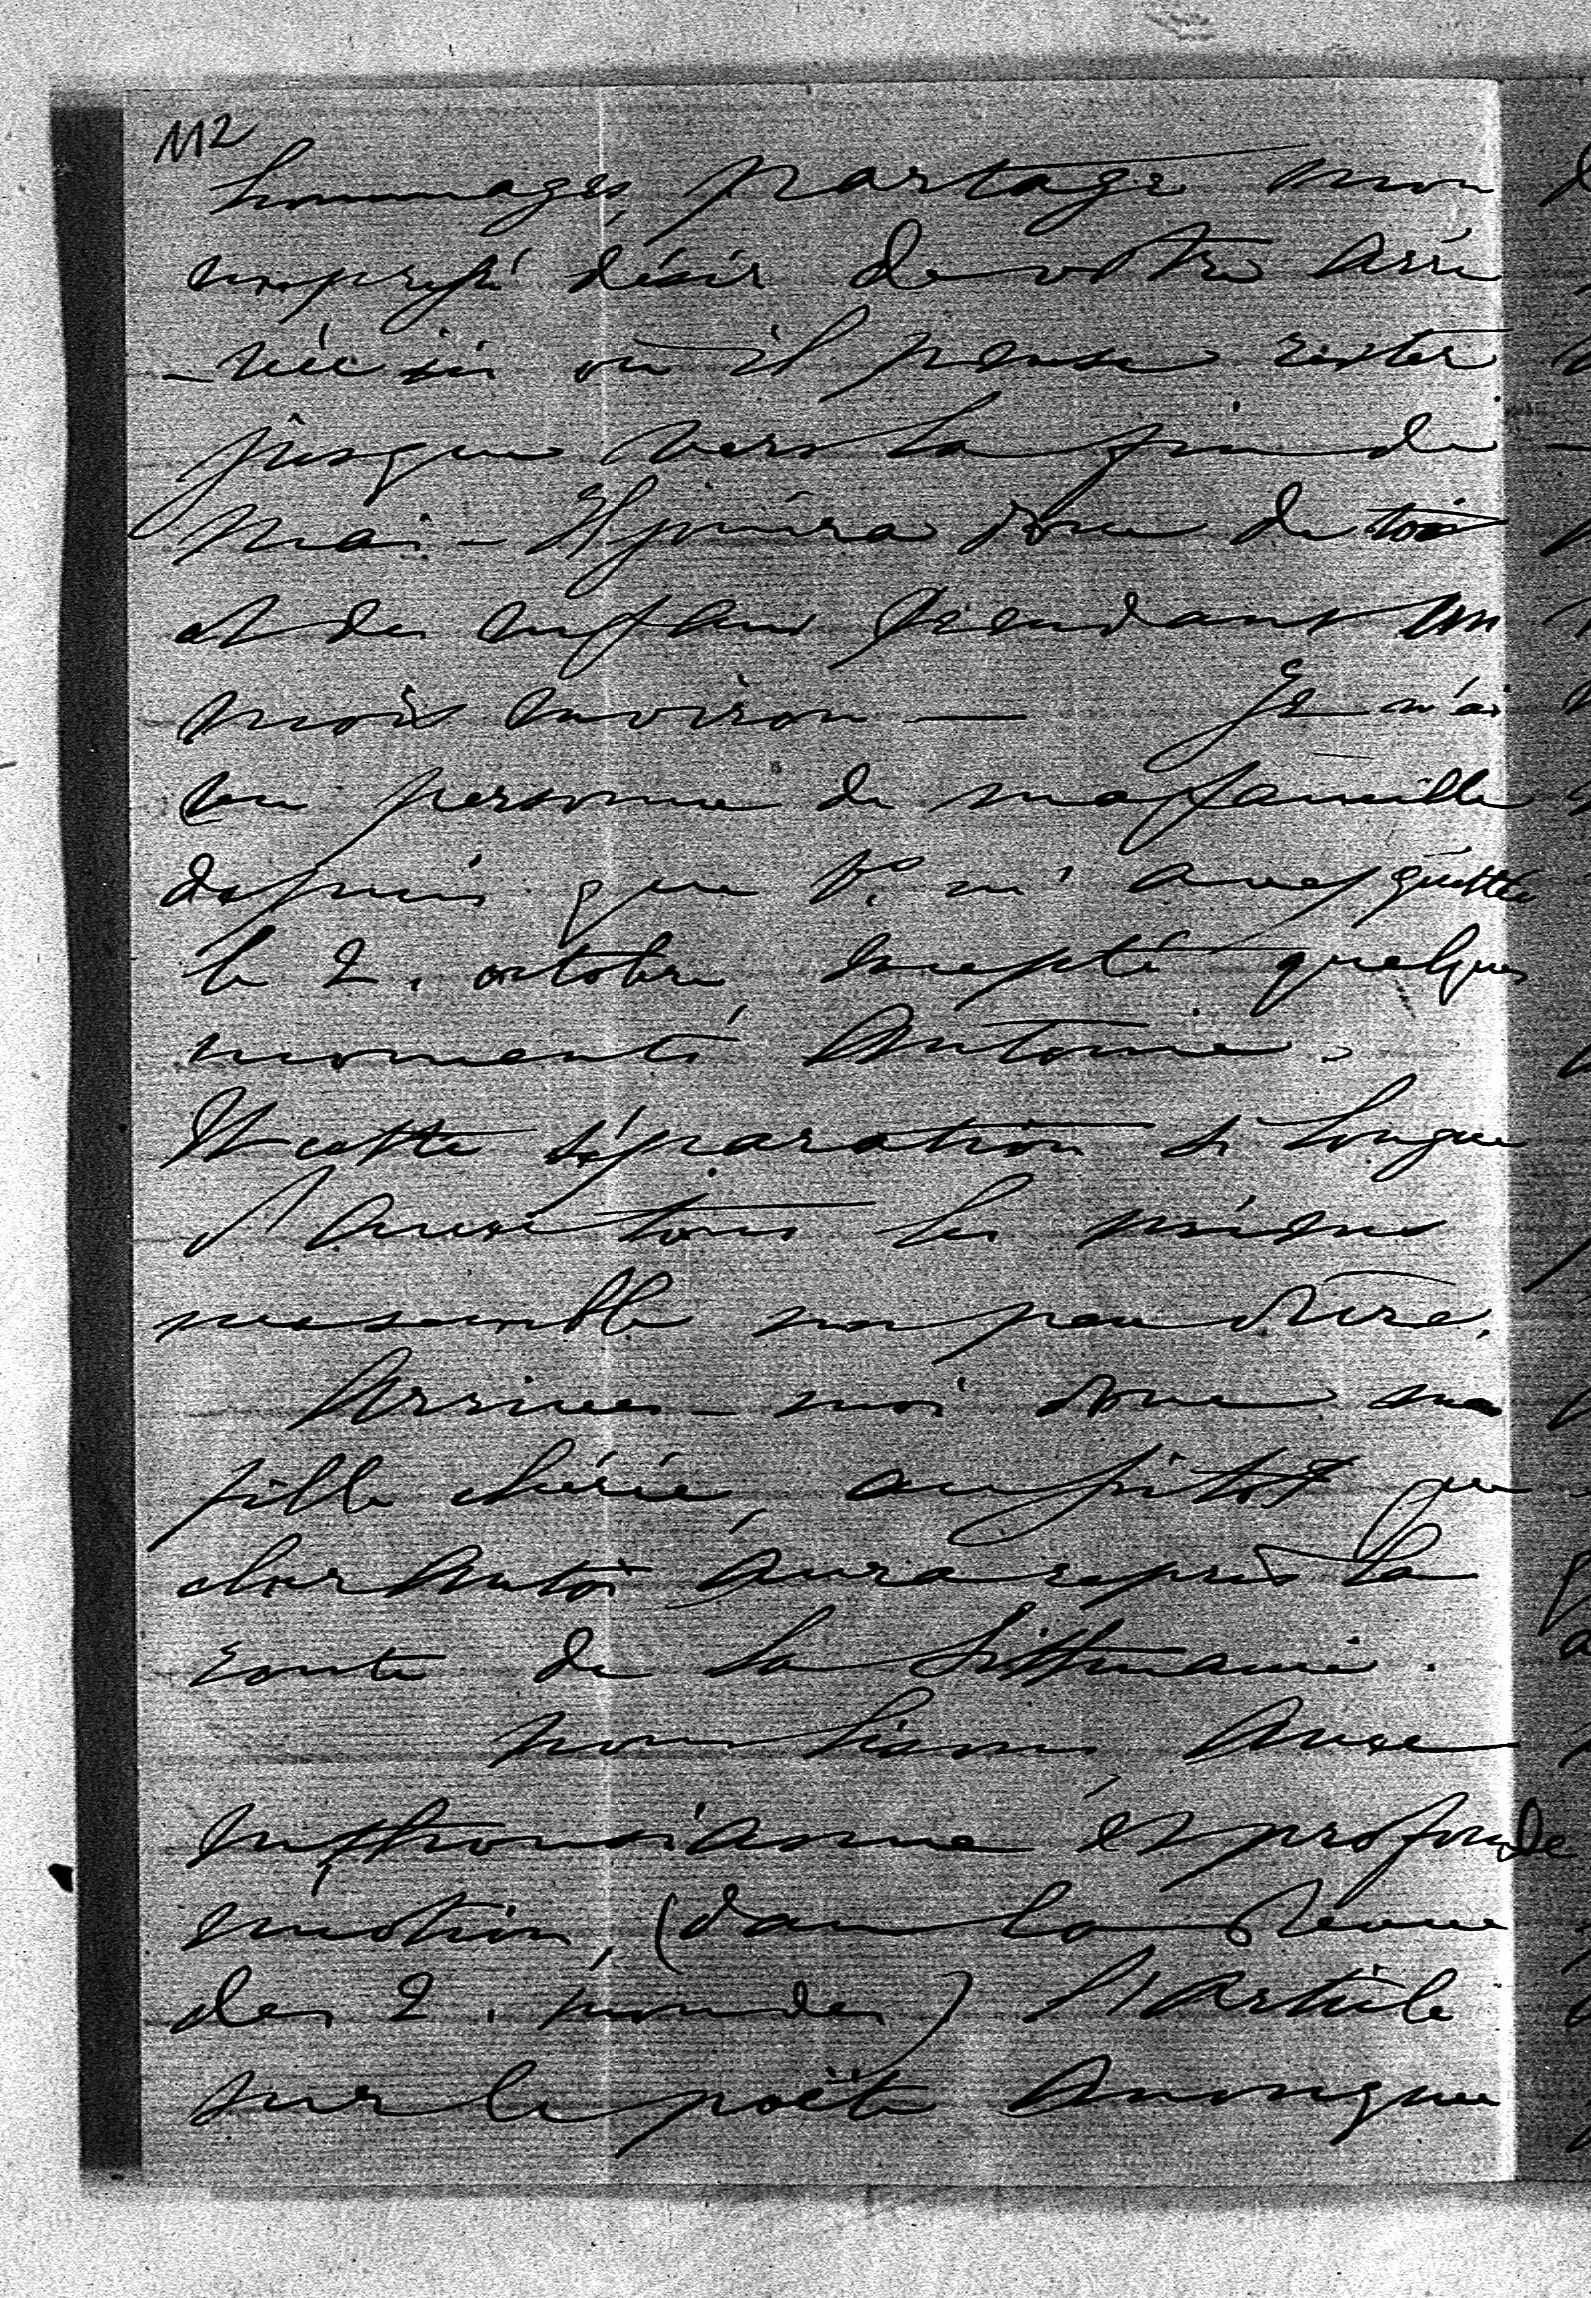 112
hommages, partage mon
empressé désir de votre arri
-vée ici où il pense rester
jusque vers la fin de
Mai – Il jouira donc de toi
et des enfans pendant un
mois environ — Je n'ai
vu personne de ma famille
depuis que V. m'avez quittée
le 2. octobre excepté quelques
moments Antoine.
Et cette séparation si longue
d'avec tous les miens
me semble un peu dure.
Arrivez-moi donc ma
fille chérie, aussitôt que
cher Antoi aura repris la
route de la Litthuanie.
nous lisons avec
enthousiasme et profonde
émotion, (dans la Revue
des 2. mondes) l'Article
sur le poëte anonyme